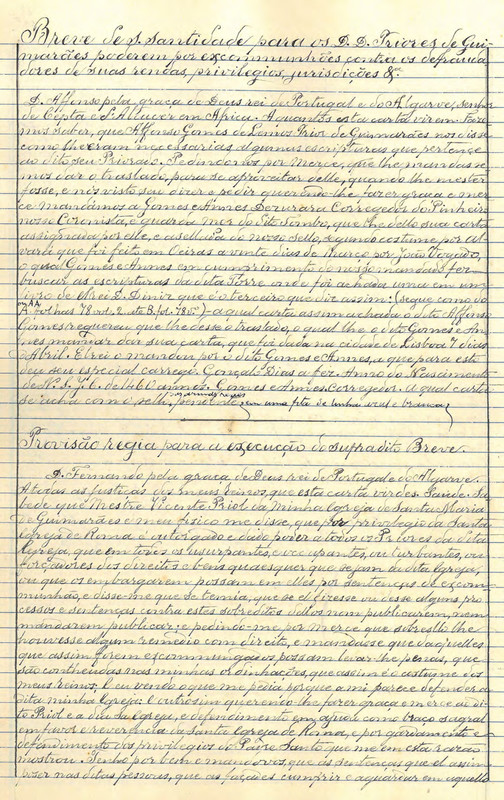 Breve de S. Santidade para os D. D. Priores de Gui-
marães poderem por excommunhões contra os defrauda-
dores de suas rendas, privilegios, jurisdições &.
D. Affonso pela graça de Deus rei de Portugal e do Algarve, senhor
de Cepta e d'Alcacer em Africa. A quantos esta carta virem faze-
mos saber, que Affonso Gomes de Lemos Prior de Guimarães nos disse
como lhe eram necessarias algumas escripturas que pertence
ao dito seu Priorado. Pedindo-nos por merce, que lhe mandasse-
mos dar o traslado, para se aproveitar delle, quando lhe mester
fosse, e nós visto seu dizer e pedir querendo-lhe fazer graça e mer-
ce mandámos a Gomes Annes Corregedor
nosso Coronista, e guarda mor do dito Tombo, que lhe desse sua carta
assignada por elle, e asellada do nosso sello, segundo costume por al-
vará que foi feito em Ceiras a vinte dias de Março por João Vogado,
o qual Gomes e Annes em cumprimento do nosso mandado fez
buscar as escripturas da dita Torre onde foi achada uma em um
livro de el-rei D. Diniz que é terceiro que diz assim: (segue como
folhas 78 - a qual carta assim achada o dito Affonso
Gomes requereu que lhe desse o traslado, o qual lhe o dito Gomes e An-
nes mandou dar sua carta, que foi dada na cidade de Lisboa 7 dias
d'Abril. El-rei o mandou por o dito Gomes e Annes, a que para esto
deu seu especial carrego. Gonçalo Dias a fez. Anno do Nascimento
de N. S. J. C. de 1460 annos. Gomes e Annes Corregedor. A qual carta
se acha com o sello pendente em uma fita de linha verde e branca
Provisão regia para a execução do sufradito Breve.
D. Fernando pela graça de Deus rei de Portugal e do Algarve.
A todas as justiças dos meus reinos, que esta carta virdes. Saude. Sa-
bede que Mestre Vicente Priol da minha Egreja de Santa Maria
de Guimarães e meu fisico me disse, que por privilegio da Santa
Egreja de Roma é outorgado e dado poder a todos os Priores da dita
Egreja, que em todos os usurpantes, e occupantes, ou turbantes, ou
forçadores dos direitos e bens quaesquer que sejam da dita Egreja,
ou que os embargarem possam em elles pôr sentenças de excom-
munhão, e disse-me que se temia, que se el fizesse ou desse alguns pro-
cessos e sentenças contra estes sobreditos dellos nom publicarem, nem
mandarem publicar: e pedindo-me por merce que sobresto lhe
houvesse algum remedio com direito, e mandasse que daquelles
que assim forem excommungados possam levar lhe penas, que
são conthendas nas minhas ordinhações, que assim é costume dos
meus reinos. E eu vendo o que me pedia porque a mi parece defender a
dita minha Egreja: E outrosim querendo-lhe fazer graça e merce ao di-
to Priol e a dita sa Egreja, e defendimento em ajuda como braço sagral
em favor e reverencia da Santa Egreja de Roma, e por guardamento e
defendimento dos privilegios do Padre Santo que me em esta razão
mostrou. Tenho por bem e mando-vos que ás sentenças que el assim
poser nas ditas pessoas, que as façaes cumprir e aguardar em aquello